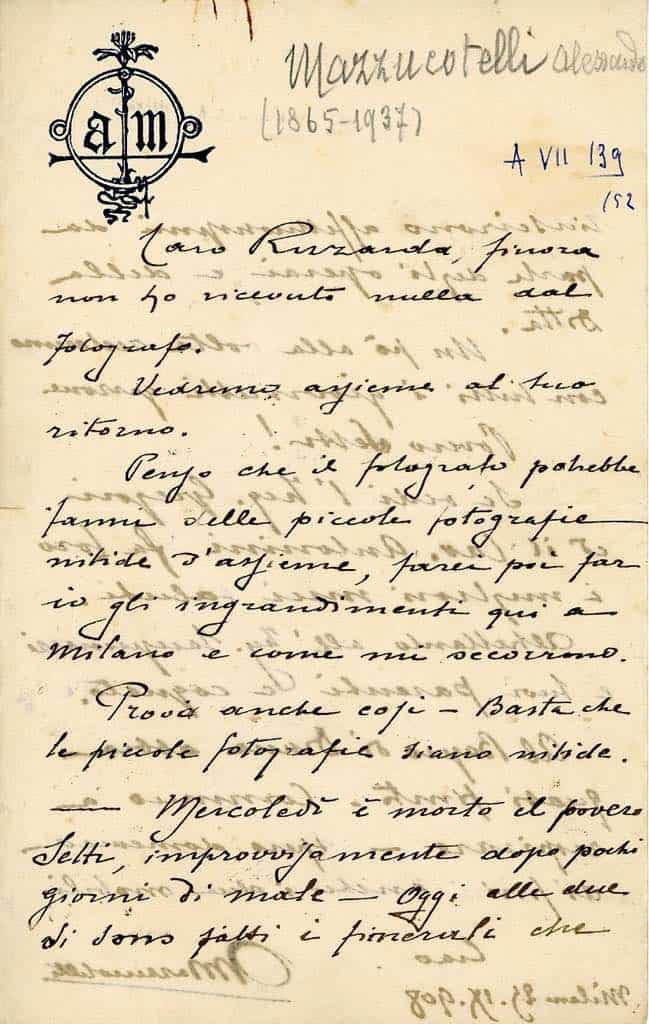 am
Mazzucotelli Alessandro
(1865-1937)
A VII 139
152
Caro Rizzarda, finora
non ho ricevuto nulla dal
fotografo.
Vedremo assieme al tuo
ritorno.
Penso che il fotografo potrebbe
farmi delle piccole fotografie
nitide d'assieme, farei poi far
io gli ingrandimenti qui a
Milano e come mi occorrono.
Prova anche così - Basta che
le piccole fotografie siano nitide.
— Mercoledì è morto il povero
Setti, improvvisamente dopo pochi
giorni di male - Oggi alle due
si sono fatti i funerali che